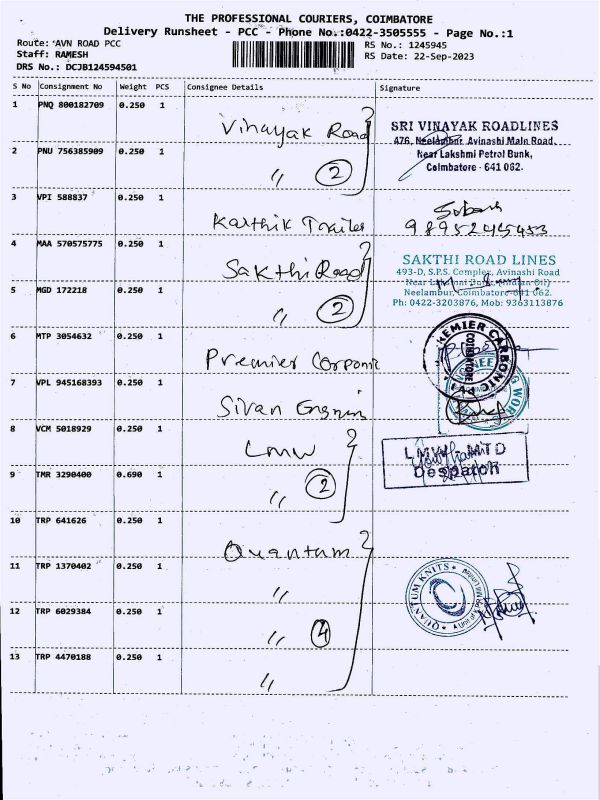 THE PROFESSIONAL COURIERS, COIMBATORE
Delivery Runsheet - PCC - Phone No.:0422-3505555 - Page No.:1
Route: AVN ROAD PCC
RS No.: 1245945
Staff: RAMESH
RS Date: 22-Sep-2023
DRS No.: DCJB124594501
S No Consignment No Weight PCS Consignee Details Signature
1 PNQ 800182709 0.250 1
Vinayak Road
SRI VINAYAK ROADLINES
476, Neelambur, Avinashi Main Road,
2 PNU 756385909 0.250 1
Near Lakshmi Petrol Bunk,
Coimbatore - 641 062.
" 2
3 VPI 588837 0.250 1
Karthik Trailer
9895245453
4 MAA 570575775 0.250 1
Sakthi Road
SAKTHI ROAD LINES
493-D, S.P.S. Complex, Avinashi Road
Near Lakshmi Bunk, (Indian Oil)
5 MGD 172218 0.250 1
Neelambur, Coimbatore-641 062.
Ph: 0422-3203876, Mob: 9363113876
" 2
6 MTP 3054632 0.250 1
Premier Corponic
PREMIER CARBONIC
COIMBATORE
7 VPL 945168393 0.250 1
Sivan Engnin
8 VCM 5018929 0.250 1
LMW
LMW - MTD
Despatch
9 TMR 3290400 0.690 1
" 2
10 TRP 641626 0.250 1
Quantum
11 TRP 1370402 0.250 1
"
QUANTUM KNITS
12 TRP 6029384 0.250 1
" 4
13 TRP 4470188 0.250 1
"